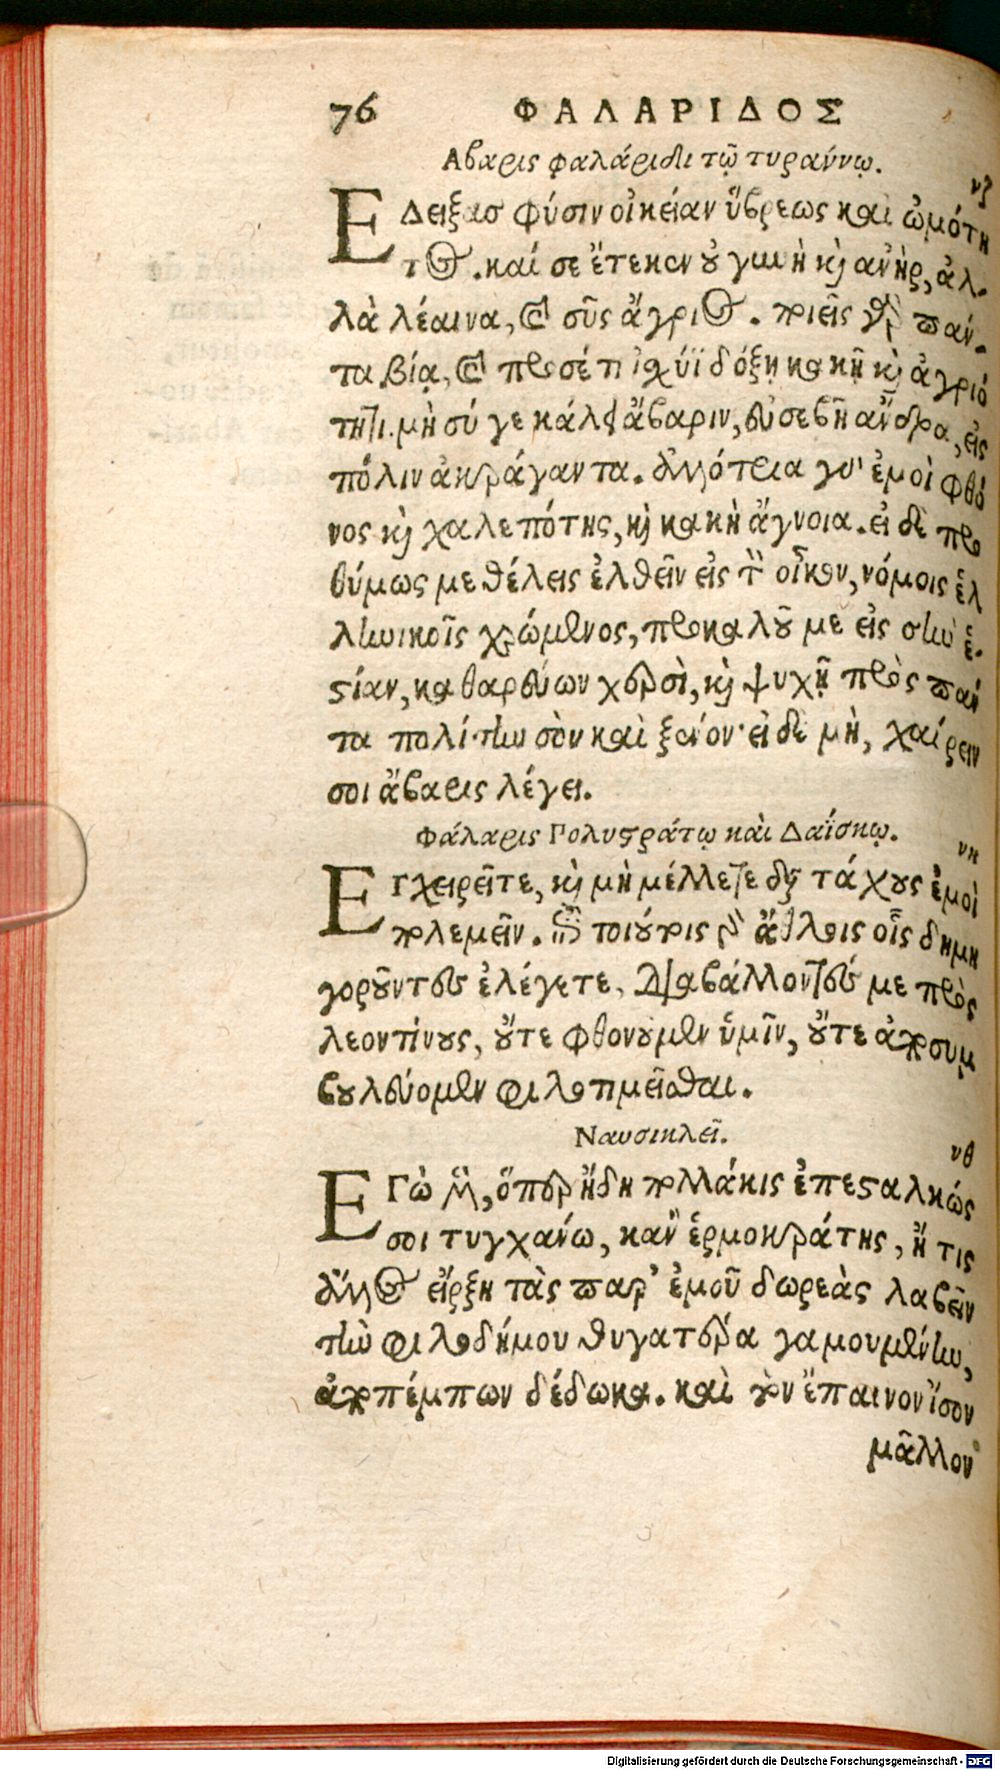 76 ΦΑΛΑΡΙΔΟΣ
Αβαρις φαλάριδι τῷ τυράννῳ. νζ
ΕΔειξας φύσιν οἰκείαν ὕβρεως καὶ ὠμότη
τος. καί σε ἔτεκον οὐ γυνὴ καὶ ἀνὴρ, ἀλ-
λὰ λέαινα, καὶ σῦς ἄγριος. ποιεῖς γὸ παν-
τα βίᾳ, καὶ προσέτι ἰσχύϊ δόξῃ κακῇ καὶ ἀγριό
τητι. μὴ σύ γε κάλει ἄβαριν, εὐσεβῆ ἄνδρα, εἰς
πόλιν ἀκράγαντα. δηλότεια γὸ ἐμοὶ φθό
νος καὶ χαλεπότης, καὶ κακὴ ἄγνοια. εἰ δὲ προ
θύμως με θέλεις ἐλθεῖν εἰς τὸν οἶκον, νόμοις ἑλ
ληνικοῖς χρώμενος, προκαλοῦ με εἰς σὴν ἑ-
στίαν, καθαρεύων χερσὶ, καὶ ψυχῇ πρὸς παν
τα πολίτην σὸν καὶ ξένον· εἰ δὲ μὴ, χαίρειν
σοι ἄβαρις λέγει.
Φάλαρις Πολυστράτῳ καὶ Δαΐσκῳ. νη
ΕΓχειρεῖτε, καὶ μὴ μέλλετε διὰ τάχους ἐμοὶ
πολεμεῖν. τοιούτοις γὸ ἄθλοις οἷς δημη
γοροῦντες ἐλέγετε, διαβάλλοντές με πρὸς
λεοντίνους, οὔτε φθονοῦμεν ὑμῖν, οὔτε ἀποσυμ
βουλεύομεν φιλοτιμεῖσθαι.
Ναυσικλεῖ. νθ
ΕΓὼ μὲν, ὅπερ ἤδη πολλάκις ἐπεσταλκώς
σοι τυγχάνω, κἂν ἑρμοκράτης, ἤ τις
ἄλλος εἴρξῃ τὰς παρ’ ἐμοῦ δωρεὰς λαβεῖν
τὴν φιλοδήμου θυγατέρα γαμουμένην,
ἀποπέμπων δέδωκα. καὶ τὸν ἔπαινον ἴσον
μᾶλλον
Digitalisierung gefördert durch die Deutsche Forschungsgemeinschaft - DFG